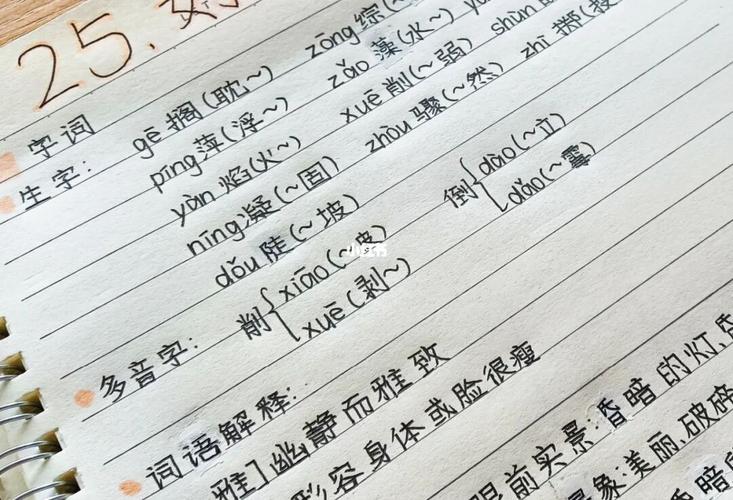 25.
字词
生字: gē 搁(耽~) zōng 综(~
píng 萍(浮~) zǎo 藻(水~)
yàn 焰(火~) xuē 削(~弱) shùn
níng 凝(~固) zhòu 骤(~然) zhì 掷(投
dǒu 陡(~坡) 倒{dào(~立)
dǎo(~霉)
多音字: 削{xiāo(~皮)
xuē(剥~)
词语解释:
雅]幽静而雅致
形容身体或脸很瘦
眼前实景:昏暗的灯、昏
象:美丽、破碎
昏暗
小红书